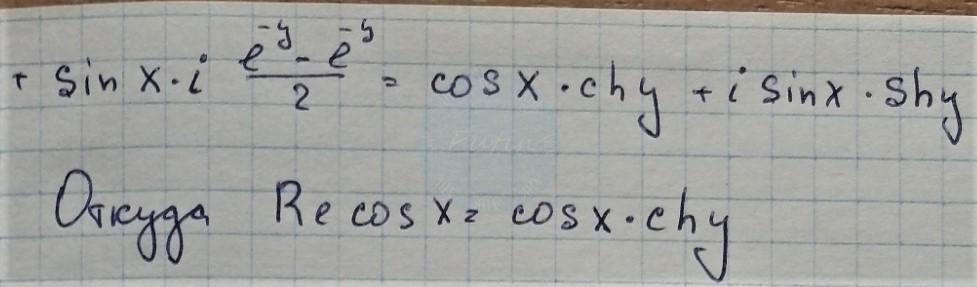 + sin x · i (e^{-y} - e^{-y})/2 = cos x · ch y + i sin x · sh y
Откуда Re cos x = cos x · ch y